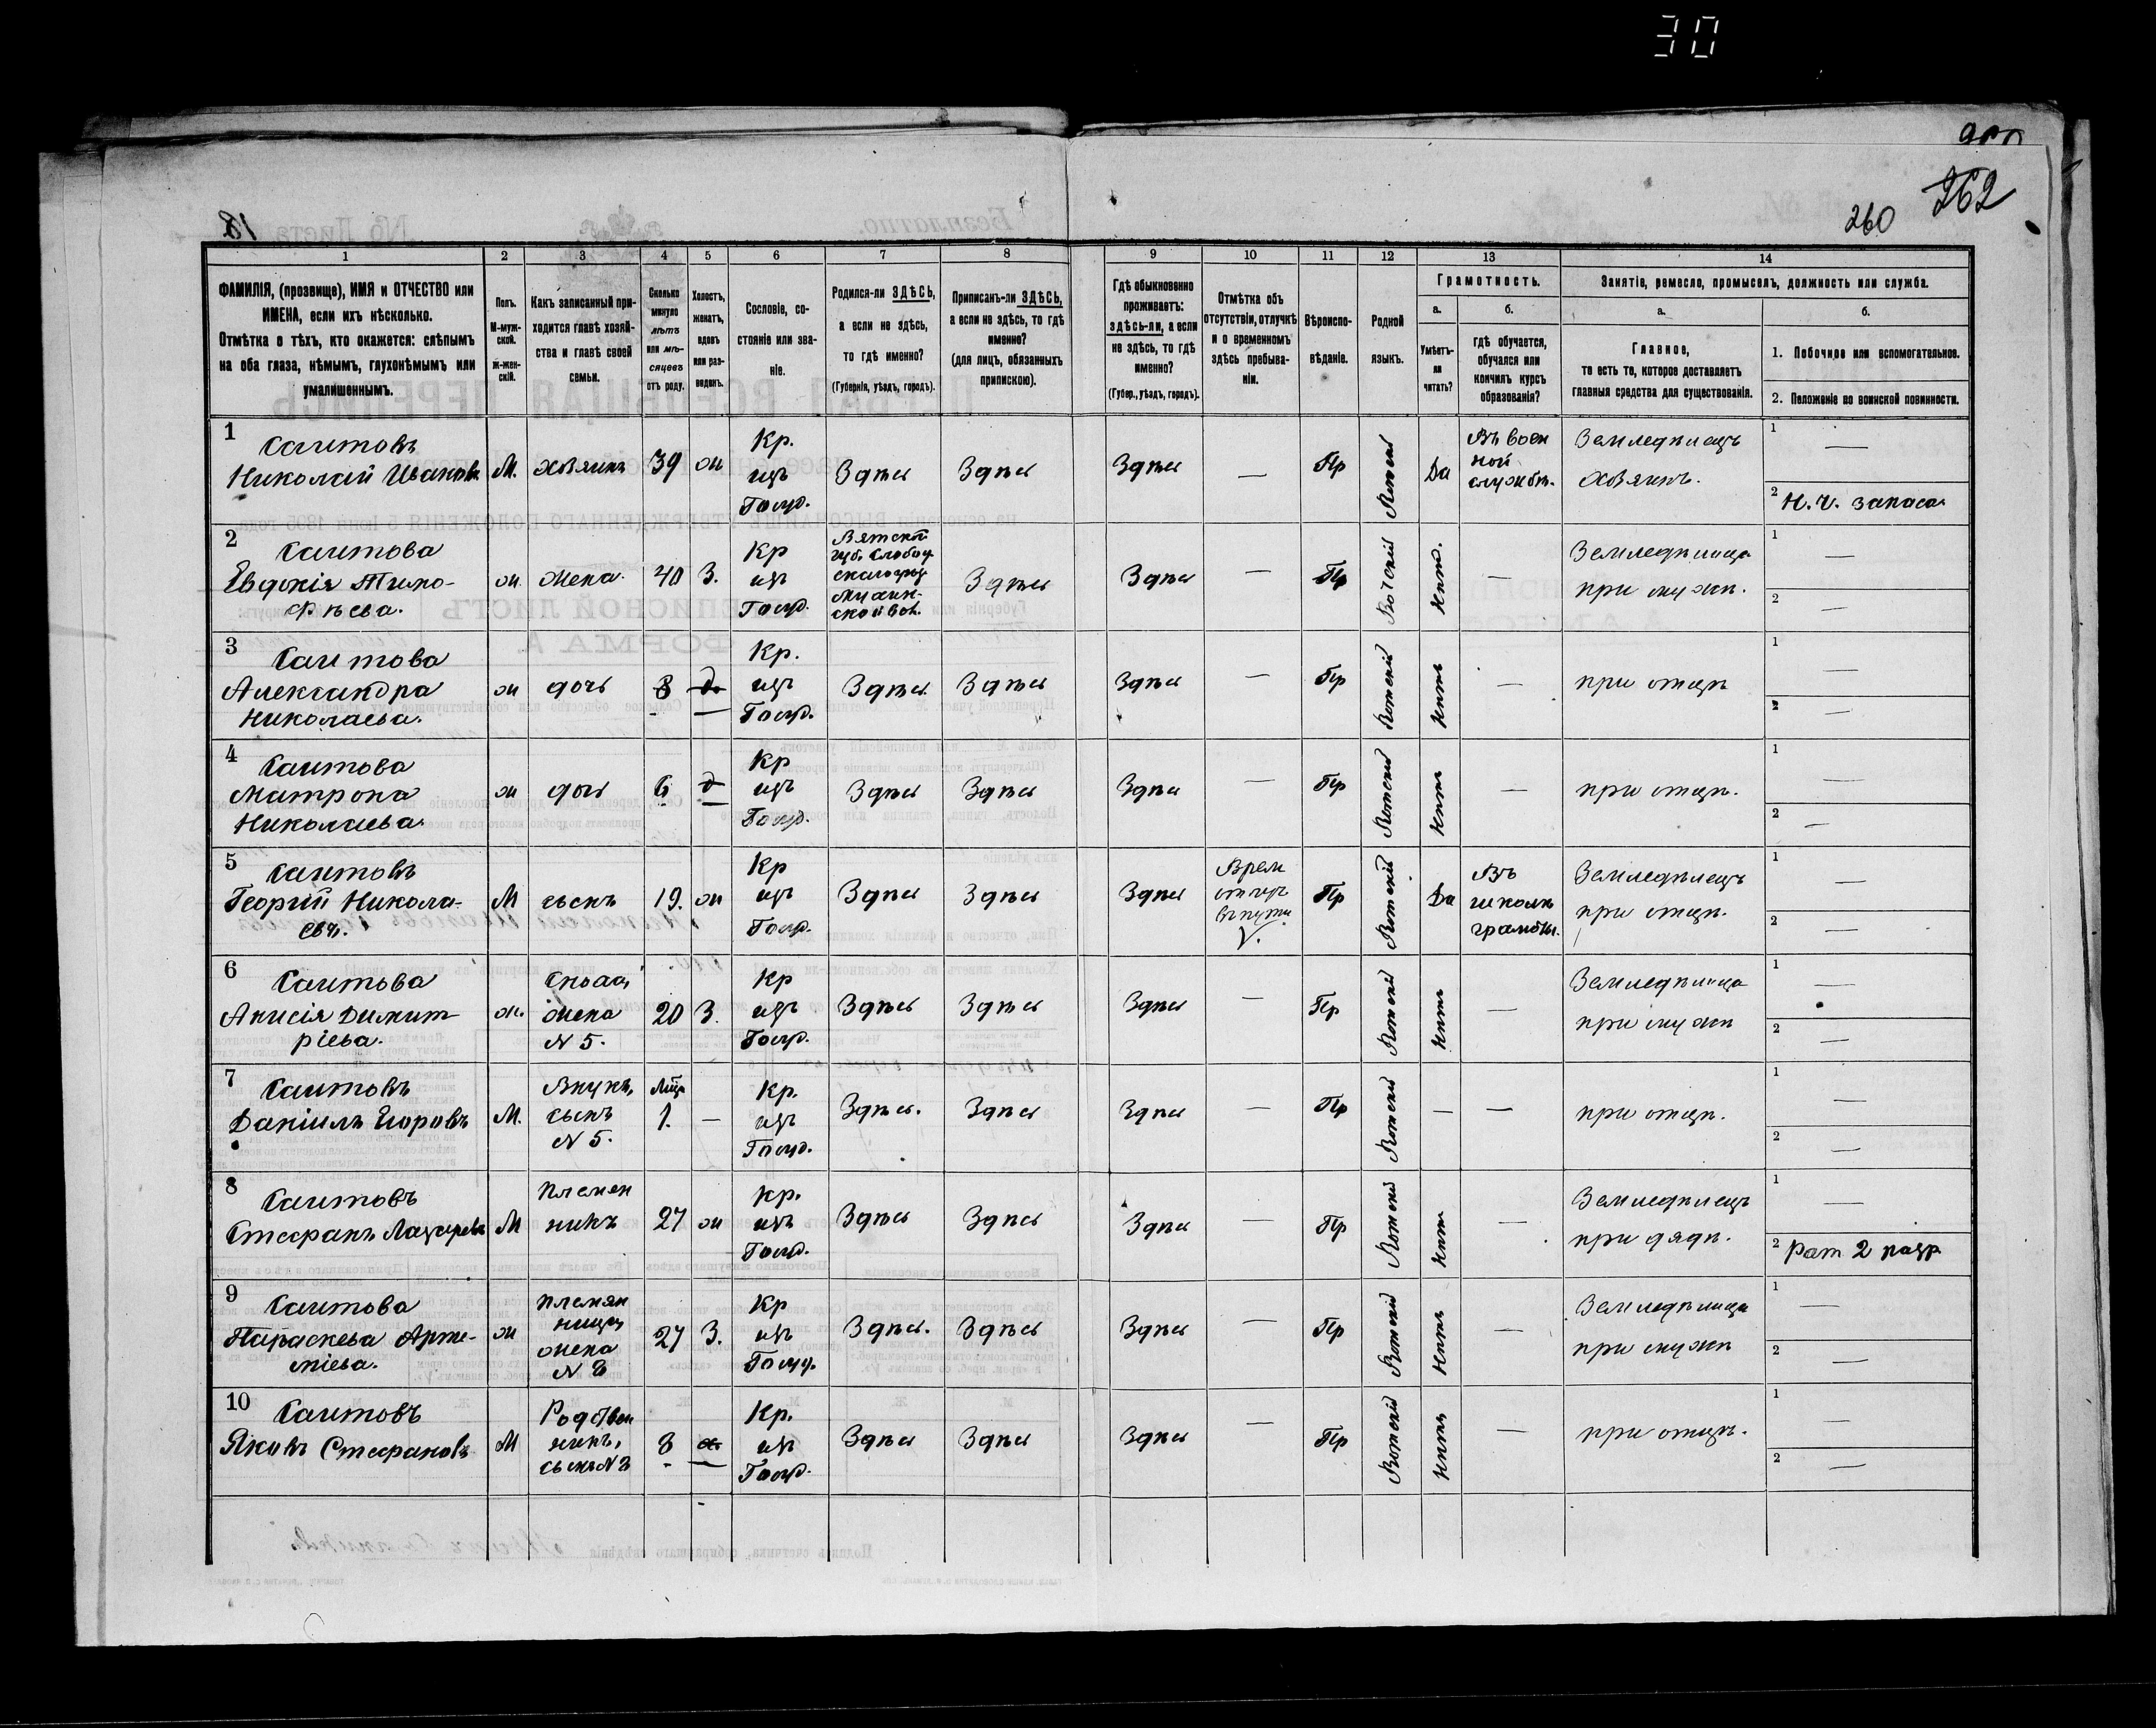 30
262
260
18
1
2
3
4
5
6
7
8
9
10
11
12
13
14
ФАМИЛІЯ, (прозвище), ИМЯ и ОТЧЕСТВО или
ИМЕНА, если ихъ нѣсколько.
Отмѣтка о тѣхъ, кто окажется: слѣпымъ
на оба глаза, нѣмымъ, глухонѣмымъ или
умалишеннымъ.
Полъ.
М-муж-
ской.
Ж-жен-
скій.
Какъ записанный при-
ходится главѣ хозяй-
ства и главѣ своей
семьи.
Сколько
минуло
лѣтъ
или мѣ-
сяцевъ
отъ роду.
Холостъ,
женатъ,
вдовъ
или раз-
веденъ.
Сословіе, со-
стояніе или зва-
ніе.
Родился-ли ЗДѢСЬ,
а если не здѣсь,
то гдѣ именно?
(Губернія, уѣздъ, городъ).
Приписанъ-ли ЗДѢСЬ,
а если не здѣсь, то гдѣ
именно?
(для лицъ, обязанныхъ
припискою).
Гдѣ обыкновенно
проживаетъ:
здѣсь-ли, а если
не здѣсь, то гдѣ
именно?
(Губер., уѣздъ, городъ).
Отмѣтка объ
отсутствіи, отлучкѣ
и о временномъ
здѣсь пребыва-
ніи.
Вѣроиспо-
вѣданіе.
Родной
языкъ.
Грамотность.
а.
Умѣетъ-
ли
читать?
б.
гдѣ обучается,
обучался или
кончилъ курсъ
образованія?
Занятіе, ремесло, промыселъ, должность или служба.
а.
Главное,
то есть то, которое доставляетъ
главныя средства для существованія.
б.
1. Побочное или вспомогательное.
2. Положеніе по воинской повинности.
1
Саитовъ
Николай Ивановъ
М.
хозяинъ
39
ж
Кр.
изъ
Госуд.
Здѣсь
Здѣсь
Здѣсь
—
Пр
Вотскій
Да
Въ воен
ной
службѣ.
Земледѣлецъ
хозяинъ.
1 —
2 Н. ч. запаса.
2
Саитова
Евдокія Тимо-
фѣева.
ж
жена.
40
З.
Кр
изъ
Госуд.
Вятской
губ. Слобод
скаго уѣз
Мухин-
ской вол.
Здѣсь
Здѣсь
—
Пр
Вотскій
Нѣт.
—
Земледѣлица
при мужѣ.
1 —
2 —
3
Саитова
Александра
Николаева.
ж
дочь
8
д
—
Кр.
изъ
Госуд.
Здѣсь
Здѣсь
Здѣсь
—
Пр
Вотскій
Нѣтъ
—
при отцѣ
1 —
2 —
4
Саитова
Матрона
Николаева.
ж
дочь
6
д
—
Кр
изъ
Госуд.
Здѣсь
Здѣсь
Здѣсь
—
Пр
Вотскій
Нѣтъ
—
при отцѣ.
1 —
2 —
5
Саитовъ
Георгій Никола-
евъ.
М
сынъ
19.
ж
Кр
изъ
Госуд.
Здѣсь
Здѣсь
Здѣсь
Врем
V.
Пр
Вотскій
Да
Въ
школѣ
грамоты.
Земледѣлецъ
при отцѣ.
1 —
2 —
6
Саитова
Анисія Димит-
ріева.
ж.
Сноха,
жена
N 5.
20
З.
Кр
изъ
Госуд.
Здѣсь
Здѣсь
Здѣсь
—
Пр
Вотскій
Нѣтъ
—
Земледѣлица
при мужѣ
1 —
2 —
7
Саитовъ
Даніилъ Егоровъ
М.
Внукъ,
сынъ
N 5.
Мѣс
1.
—
Кр.
изъ
Госуд.
Здѣсь.
Здѣсь
Здѣсь
—
Пр
Вотскій
—
—
при отцѣ.
1 —
2 —
8
Саитовъ
Стефанъ Лазаревъ
М
племян
никъ
27
ж
Кр.
изъ
Госуд.
Здѣсь
Здѣсь
Здѣсь
—
Пр
Вотскій
Нѣтъ
—
Земледѣлецъ
при дядѣ.
1 —
2 Рат 2 разр
9
Саитова
Параскева Арте-
міева.
ж
племян
ница,
жена
N 8
27
З.
Кр
изъ
Госуд.
Здѣсь.
Здѣсь
Здѣсь
—
Пр
Вотскій
Нѣтъ
—
Земледѣлица
при мужѣ
1 —
2 —
10
Саитовъ
Яковъ Стефановъ
М
Родствен
никъ,
сынъ N 8
8
х
—
Кр.
изъ
Госуд.
Здѣсь
Здѣсь
Здѣсь
Пр
Вотскій
Нѣтъ
—
при отцѣ.
1 —
2 —